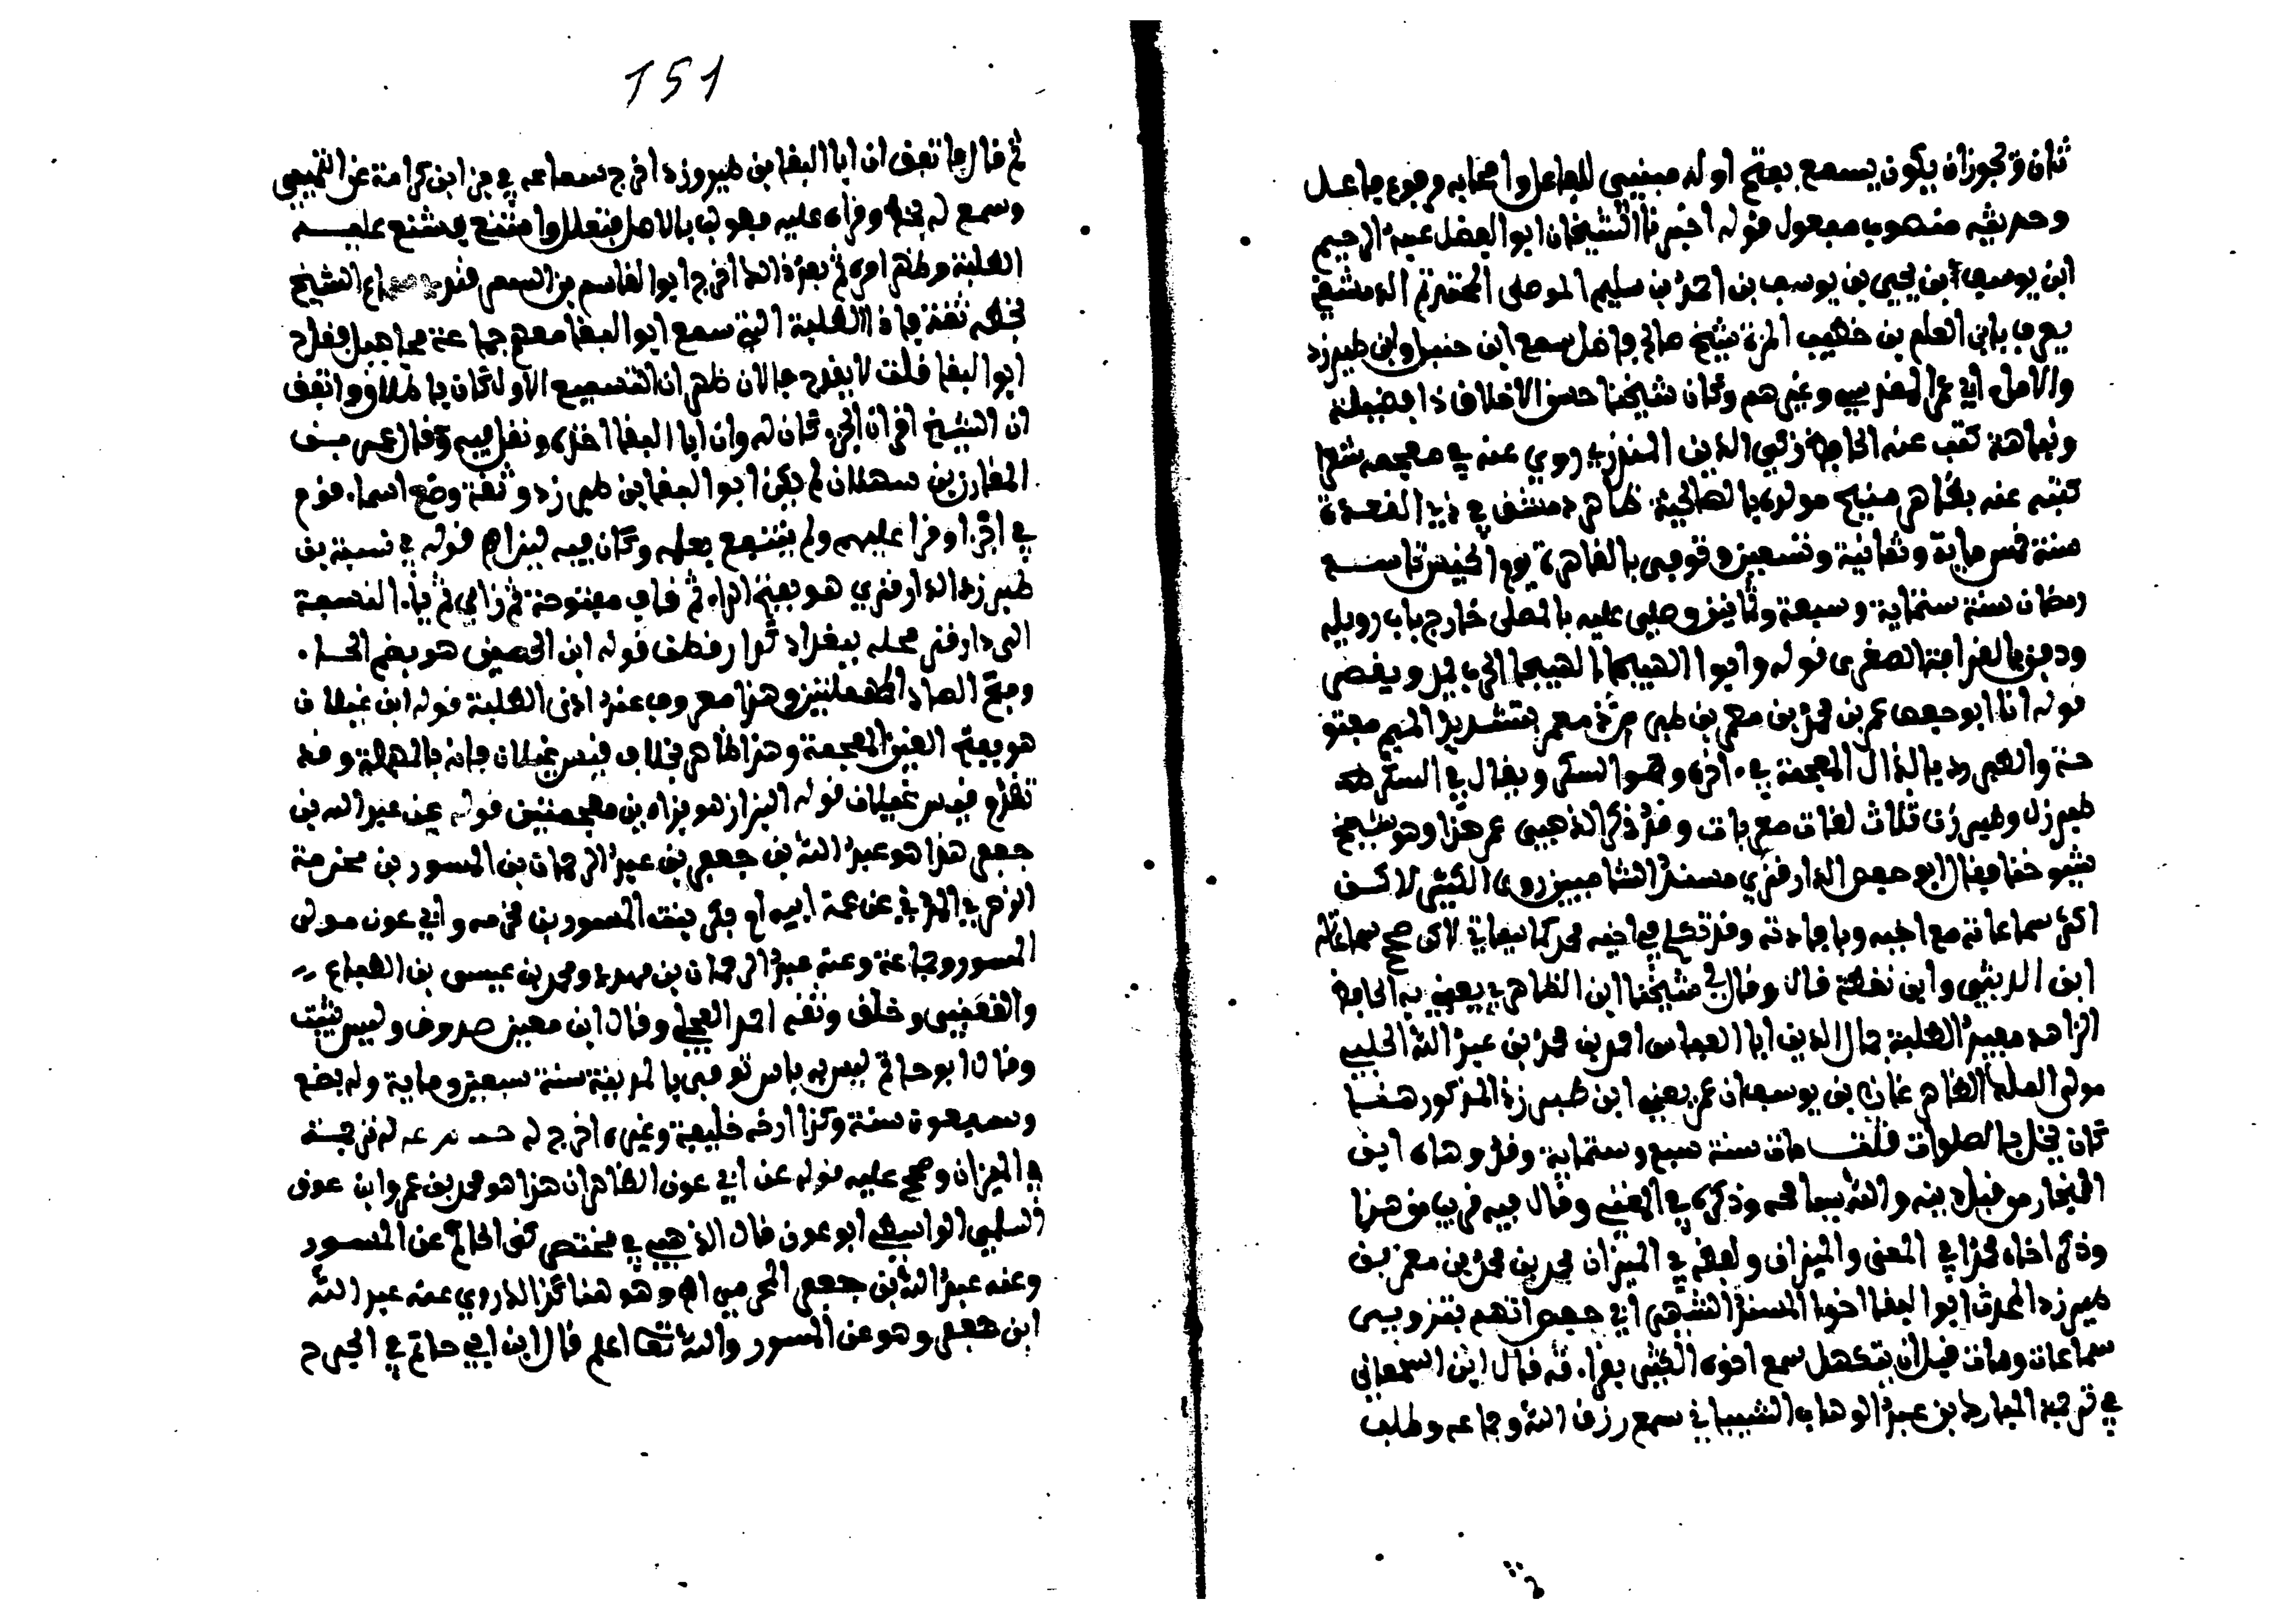 ثان ويجوز ان يكون يسمع بفتح اوله مبنيي للفاعل واصحابه مرفوع فاعل
وحديثه منصوب مفعول قوله اخبرنا الشيخان ابو الفضل عبد الرحيم
ابن يوسف بن يحيى بن يوسف بن احمد بن سليم الموصلي المحتد ثم الدمشقي
يعرف بابن العلم بن خطيب المزة شيخ صالح فاضل سمع ابن حنبل وابن طبرزد
والامام ابي عمر المقدسي وغيرهم وكان شيخنا حسن الاخلاق ذا فضيلة
ونباهة كتب عنه الحافظ زكي الدين المنذري روي عنه في معجمه شعرا
كتبه عنه بظاهر منبج مولده بالصالحية ظاهر دمشق في ذي القعدة
سنة خمس ماية وثمانية وتسعين وتوفي بالقاهرة يوم الخميس تاسع
رمضان سنة ستماية وسبعة وثمانين وصلي عليه بالمصلى خارج باب زويلة
ودفن بالقرافة الصغرى قوله وابوا الهيجاء الهيجا الحرب يمد ويقصر
قوله انا ابو حفص عمر بن محمد بن معمر بن طبرزذ معمر بتشديد الميم مفتو
حة والطبرزد بالذال المعجمة في اخره وهو السكر ويقال في السكر طبـ
طبرزل وطبرزن ثلاث لغات معربات وقد ذكر الذهبي عمر هذا وهو شيخ
شيوخنا فقال ابو حفص الدارقزي مسند الشاميين روى الكثير لاكن
اكثر سماعاته مع اخيه وبافادته وقد تكلم في اخيه محمد كما سياتي لاكن صحح سماعاته
ابن الدبيثي وابن نقطة قال وقال لي شيخنا ابن الظاهري يعني به الحافظ
الزاهد مفيد الطلبة جمال الدين ابا العباس احمد بن محمد بن عبد الله الحلبي
مولى الملك الظاهر غازي بن يوسف ان عمر يعني ابن طبرزذ المذكور هنا
كان يخل بالصلوات قلت مات سنة سبع وستماية وقد وهاه ابن
النجار من قبل دينه والله يسامحه وذكره في المغني وقال فيه قريب من هذا
وذكر اخاه محمدا في المغني والميزان ولفظه في الميزان محمد بن محمد بن معمر بن
طبرزد المحدث ابو البقا اخوا المسند الشهير ابي حفص اتهم بتزويير
سماعات ومات قبل ان يتكهل سمع اخوه الكثير بقراءته قال ابن السمعاني
في ترجمة المبارك بن عبد الوهاب الشيباني سمع رزق الله وجماعة وطلب
151
ثم قال فاتفق ان ابا البقا بن طبرزد اخرج سماعه في جزء ابن كرامة عن التميمي
وسمع له بخطه وقراه عليه فطولب بالاصل فتعلل وامتنع فشنع عليه
الطلبة وظهر امره ثم بعد ذلك اخرج ابو القاسم بن السمرقندي سماع الشيخ
بخط ثقة فاذا الطلبة التي سمع ابو البقا معهم جماعة مجاهيل ففرح
ابو البقا فقلت لا تفرح فالان ظهر ان التسميع الاول كان باطلا واتفق
ان الشيخ اقر ان الجزء كان له وان ابا البقا اخذه ونقل فيه وقال عمر بن
المبارك بن سهلان لم يكن ابو البقا بن طبرزد ثقة وضع اسماء قوم
في اجزاء وقرا عليهم ولم ينتفع بعلمه وكان فيه لين اه قوله في نسبة بن
طبرزد الدارقزي هو بفتح الراء ثم قاف مفتوحة ثم زاي ثم ياء النسبة
الى دار قز محلة ببغداد كدار قطن قوله ابن الحصين هو بضم الحاء
وفتح الصاد المهملتين وهذا معروف عند ادنى الطلبة قوله ابن غيلان
هو بفتح الغين المعجمة وهذا ظاهر بخلاف قيس عيلان فانه بالمهملة وقد
تقدم قيس عيلان قوله البزاز هو بزاءين معجمتين قوله عن عبد الله بن
جعفر هذا هو عبد الله بن جعفر بن عبد الرحمان بن المسور بن مخرمة
الزهري المدني عن عمة ابيه ام بكر بنت المسور بن مخرمه وابي عون مولى
المسور وجماعة وعنه عبد الرحمان بن مهدي ومحمد بن عيسى بن الطباع
والقعنبي وخلق وثقه احمد العجلي وقال ابن معين صدوق وليس بثبت
وقال ابو حاتم ليس به باس توفي بالمدينة سنة سبعين وماية وله بضع
وسبعون سنة وكذا ارخه خليفة وغيره اخرج له له ترجمة
في الميزان وصحح عليه قوله عن ابي عون الظاهر ان هذا هو محمد بن عمرو ابن عون
السلمي الواسطي ابو عون قال الذهبي في مختصر كنى الحاكم عن المسور
وعنه عبد الله بن جعفر المخرمي اه وهو هنا كذا لك روي عنه عبد الله
ابن جعفر وهو عن المسور والله تعا اعلم قال ابن ابي حاتم في الجرح